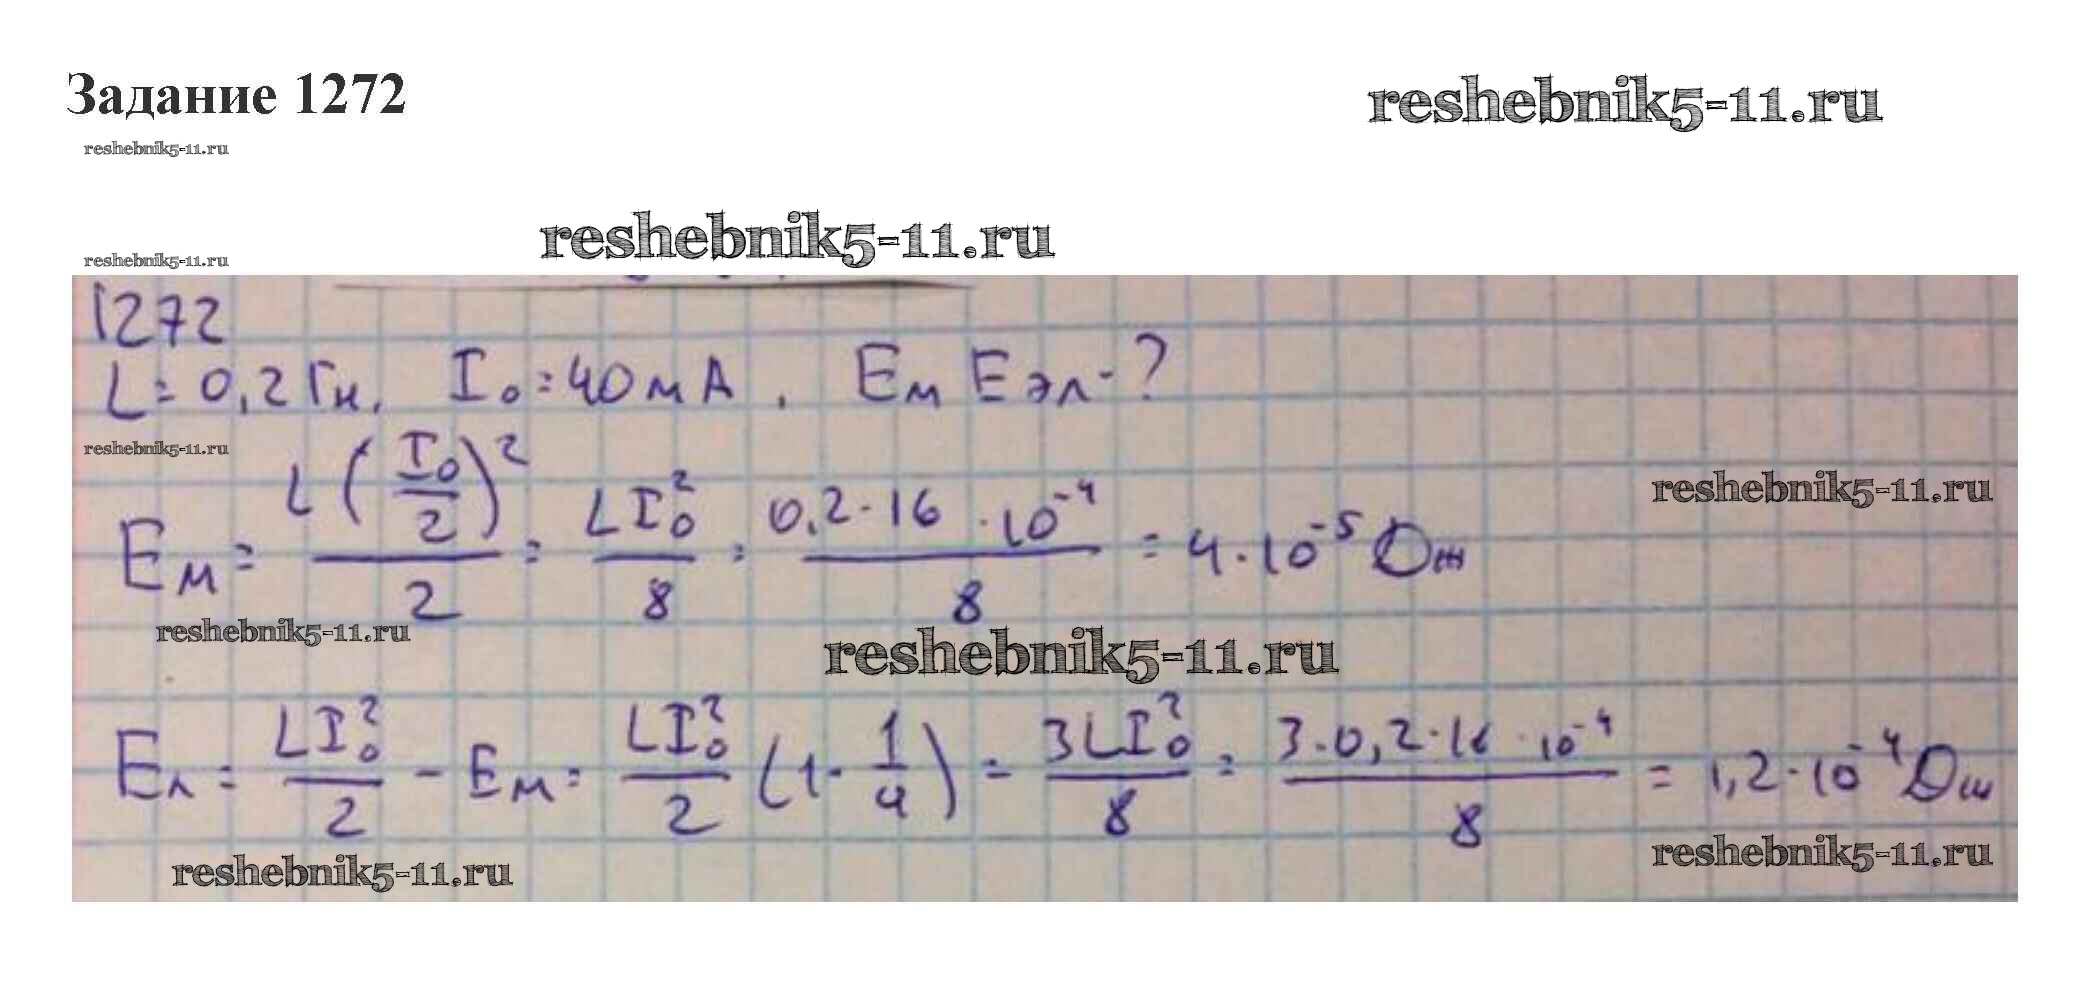 Задание 1272
reshebnik5-11.ru
reshebnik5-11.ru
reshebnik5-11.ru
reshebnik5-11.ru
1272
L = 0,2 Гн, I₀ = 40 мА, Eм Eэл - ?
reshebnik5-11.ru
reshebnik5-11.ru
Eм = L(I₀/2)²/2 = LI₀²/8 = 0,2·16·10⁻⁴/8 = 4·10⁻⁵ Дж
reshebnik5-11.ru
reshebnik5-11.ru
Eл = LI₀²/2 - Eм = LI₀²/2 (1 - 1/4) = 3LI₀²/8 = 3·0,2·16·10⁻⁴/8 = 1,2·10⁻⁴ Дж
reshebnik5-11.ru
reshebnik5-11.ru